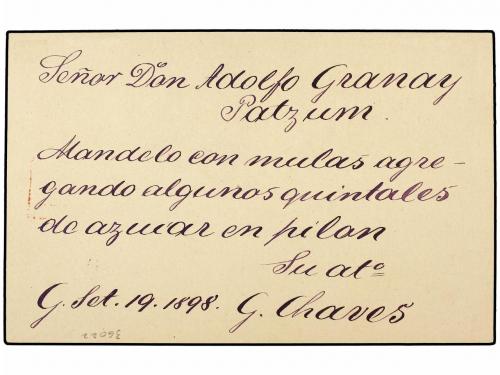 Señor Don Adolfo Granay
Patzum.
Mandelo con mulas agre-
gando algunos quintales
de azucar en pilon
Su atº
G. Set. 19. 1898. G. Chaves
36022